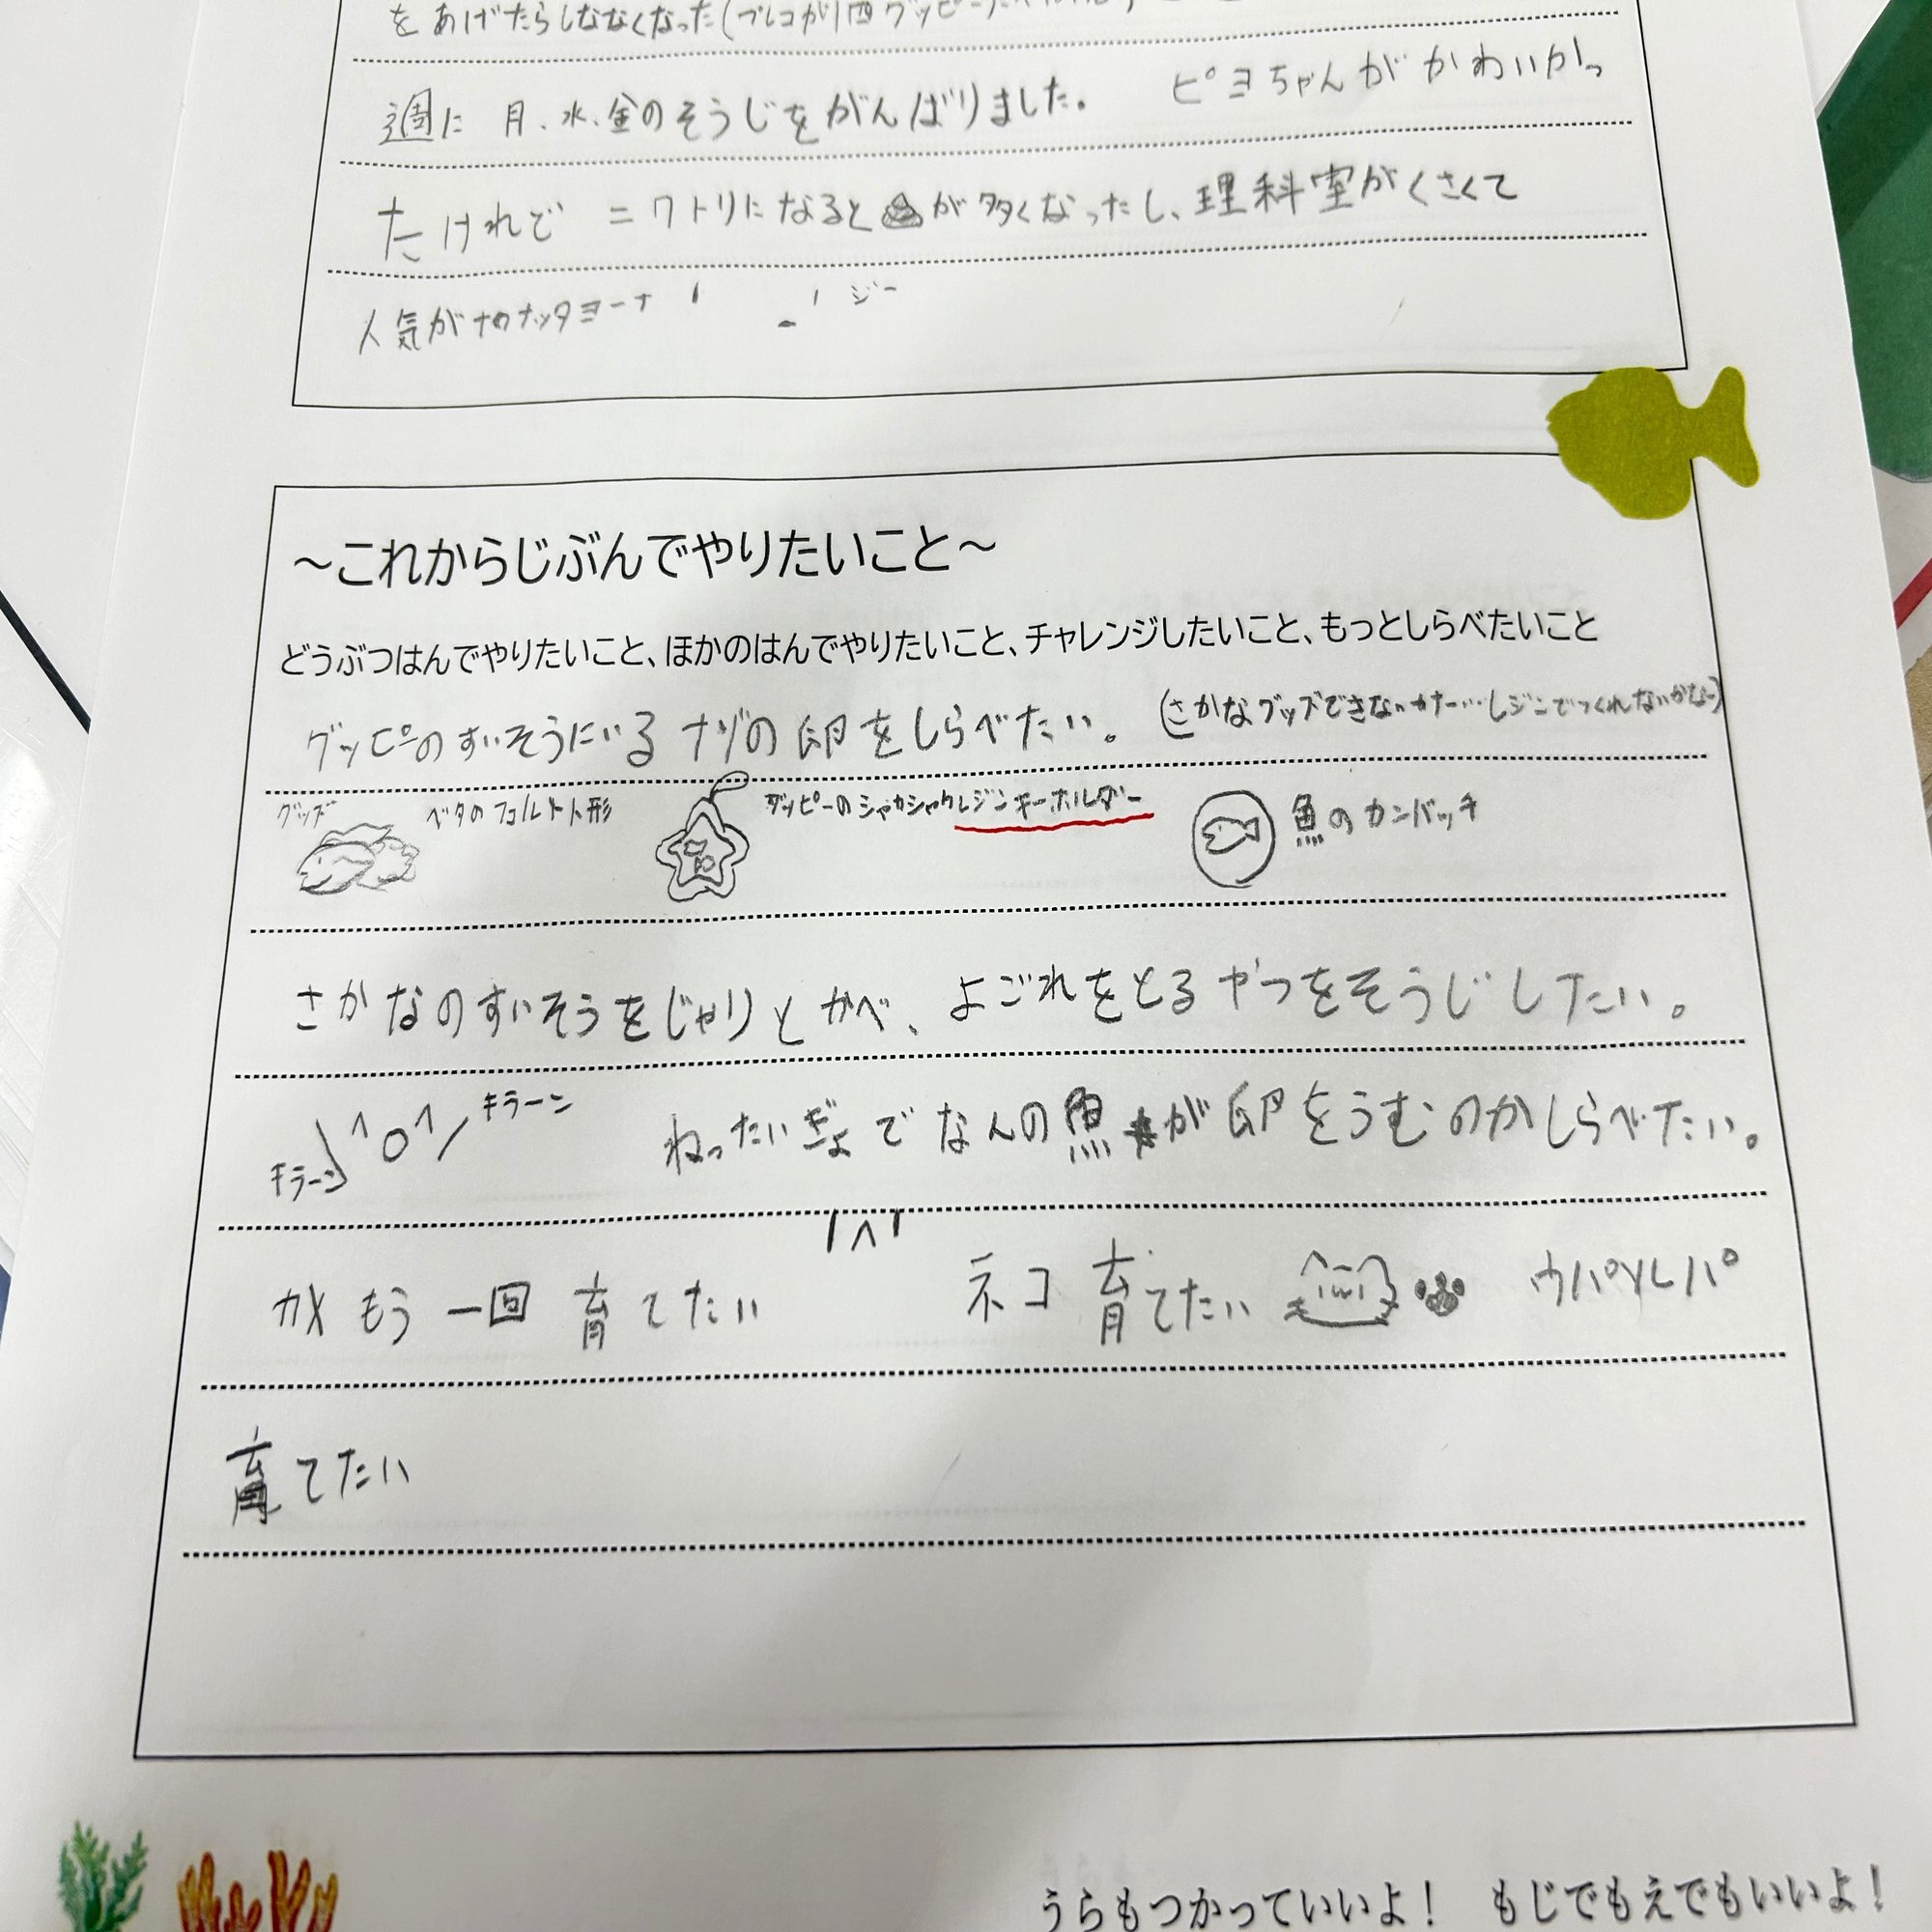 をあげたらしななくなった(プレコがが
週に 月、水、金のそうじをがんばりました。 ピヨちゃんがかわいかっ
たけれど ニワトリになると が多くなったし、理科室がくさくて
人気が
～これからじぶんでやりたいこと～
どうぶつはんでやりたいこと、ほかのはんでやりたいこと、チャレンジしたいこと、もっとしらべたいこと
グッピーのすいそうにいるナゾの卵をしらべたい。(さかなグッズできないカナー…レジンでつくれないかな~)
グッズ ベタのフェルト人形 グッピーのシャカシャカレジンキーホルダー 魚のカンバッチ
さかなのすいそうをじゃりとかべ、よごれをとるやつをそうじしたい。
キラーン ^o^ キラーン ねったいぎょでなんの魚が卵をうむのかしらべたい。
カメもう一回育てたい ネコ育てたい ウパルパ
育てたい
うらもつかっていいよ! もじでもえでもいいよ!